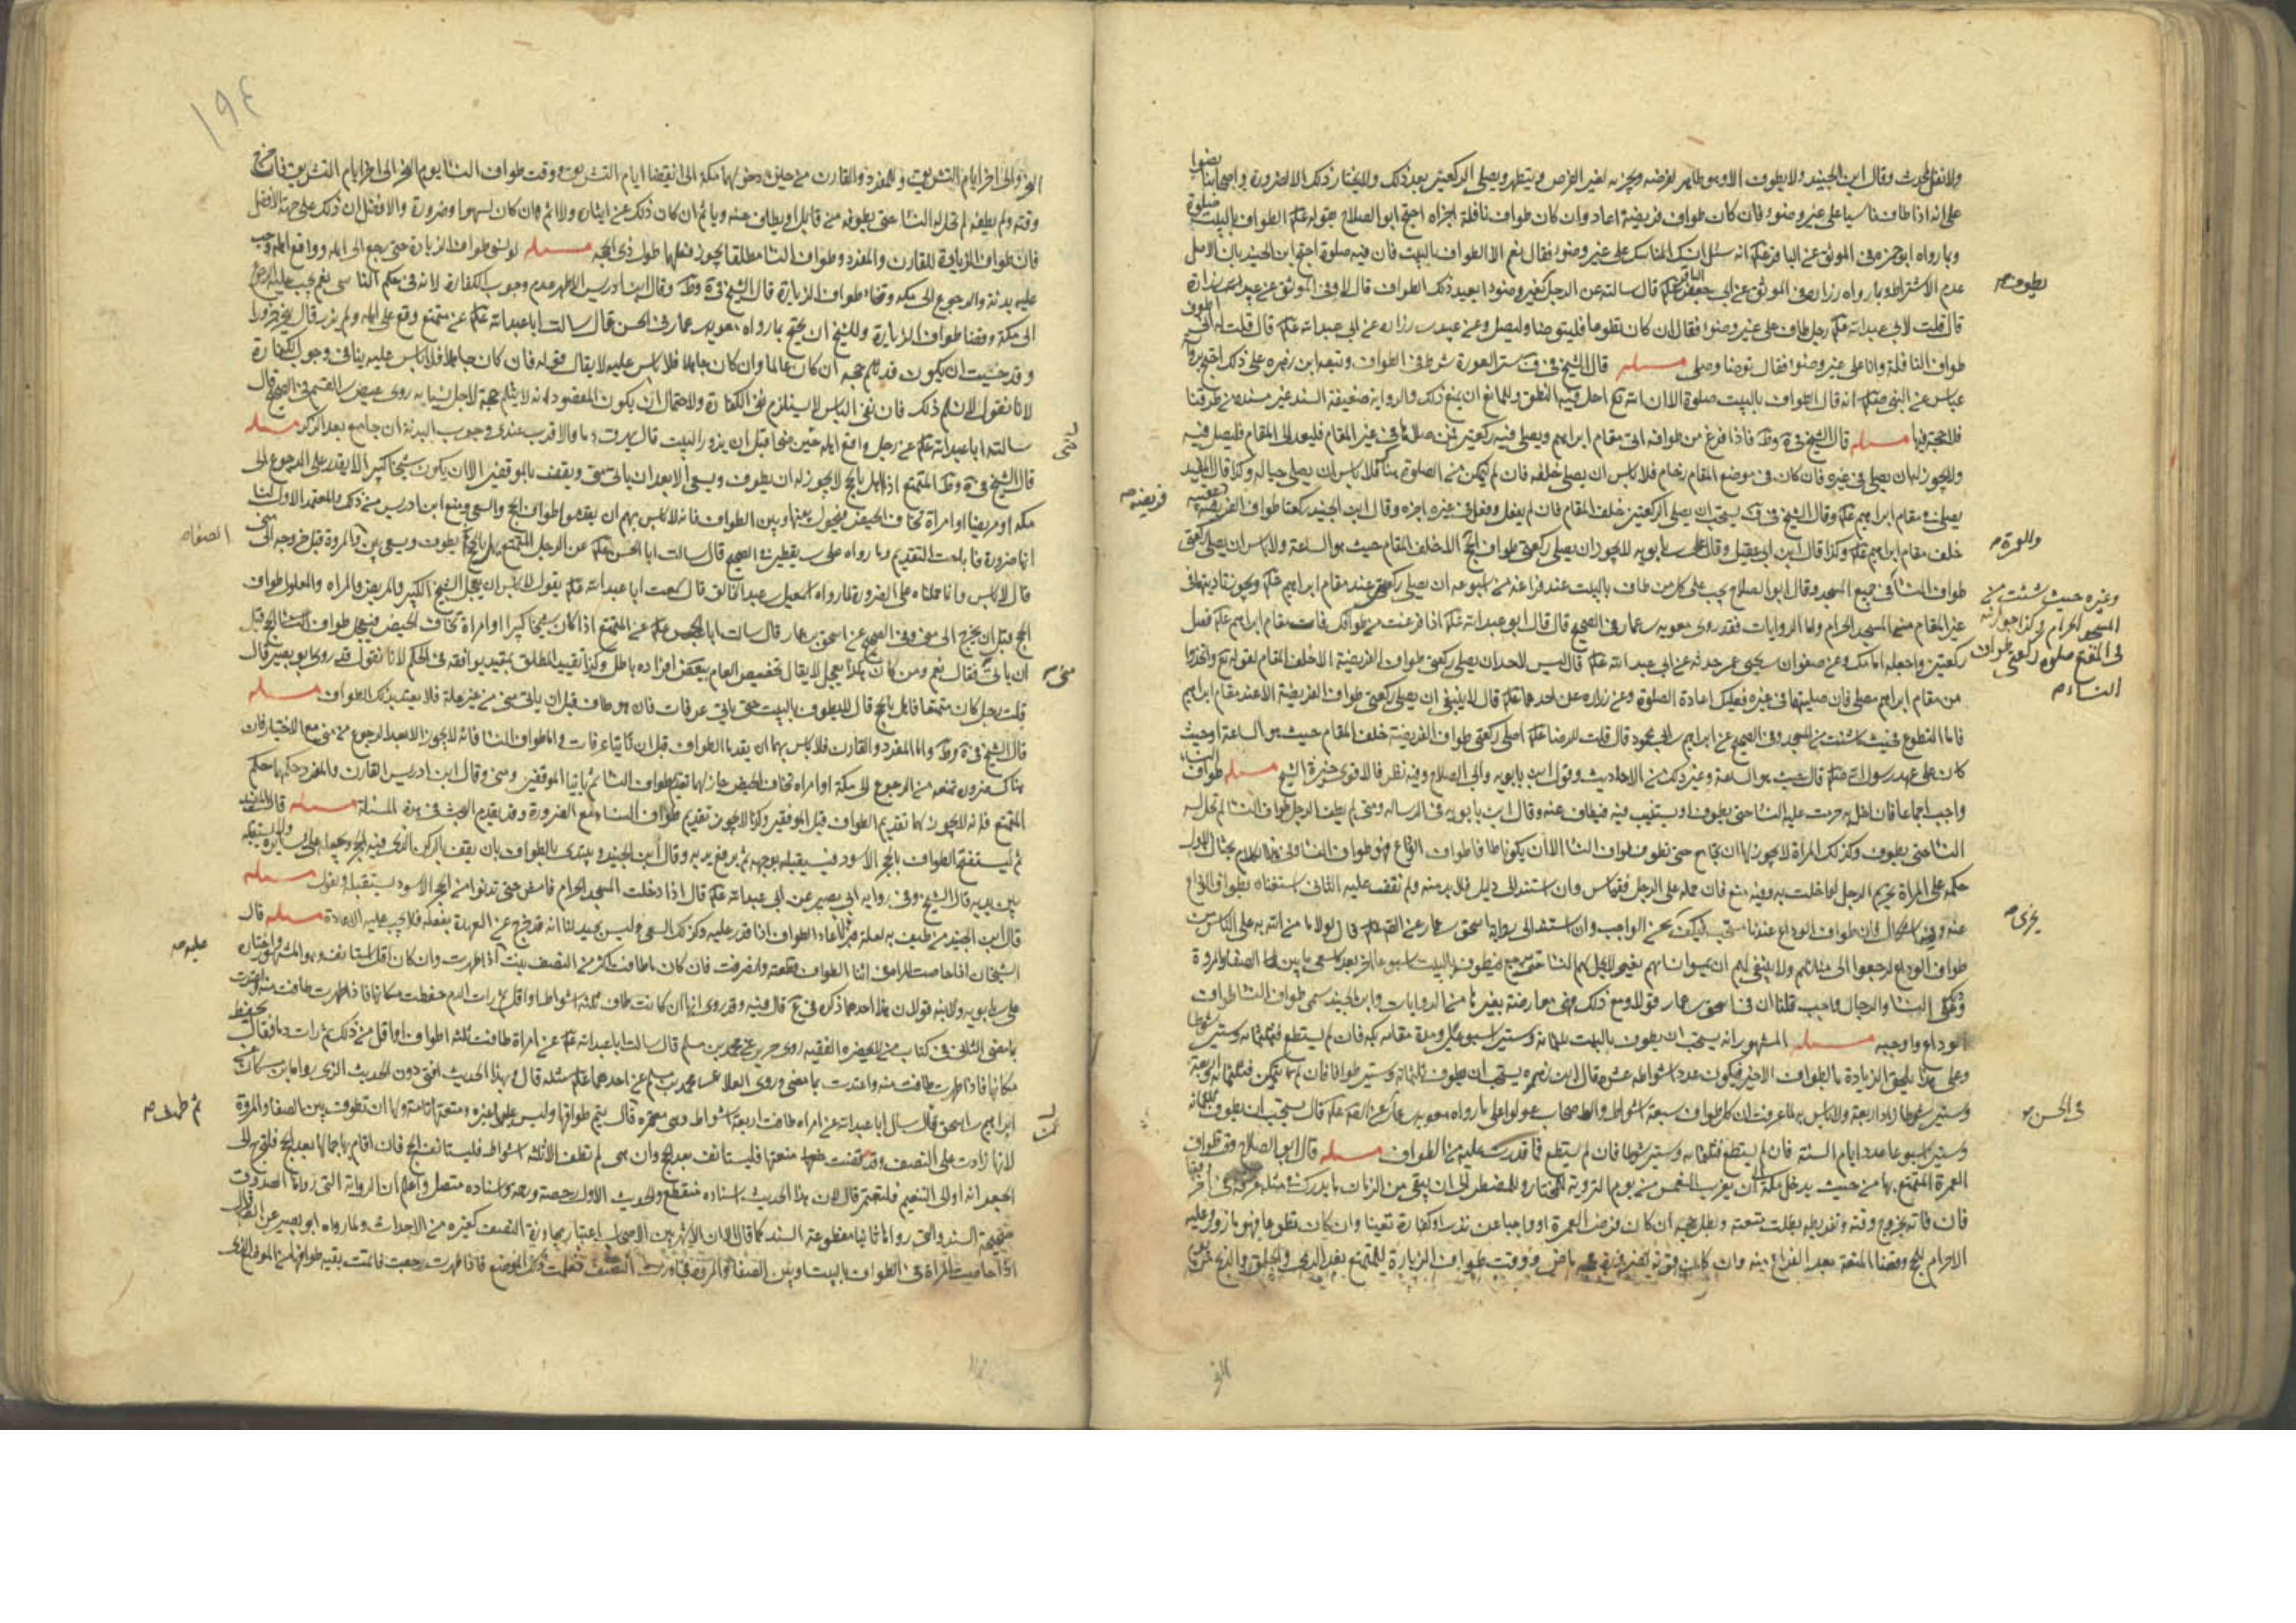 ولا نفل لمحدث وقال ابن الجنيد ولا يطوف الا وهو طاهر لفرضه ويجزيه لغير الفرض ويتطهر ويصلي الركعتين بعد ذلك ولا يختار ذلك الا لضرورة واصحابنا نصوا
على انه اذا طاف ناسيا على غير وضوء فان كان طواف فريضة اعاد وان كان طواف نافلة اجزاه احتج ابو الصلاح بقوله عليه الطواف بالبيت صلوة
وبما رواه ابو حمزه في الموثق عن الباقر عليه انه سئل اينسك المناسك على غير وضوء فقال نعم الا الطواف بالبيت فان فيه صلوة احتج ابن الجنيد بان الاصل
عدم الاشتراط وبما رواه زراره في الموثق عن ابي جعفر الباقر عليه قال سالته عن الرجل بغير وضوء ايعيد ذلك الطواف قال لا وفي الموثق عن عبيد بن زرارة
يطوف صح
قال قلت لابي عبدالله عليه رجل طاف على غير وضوء فقال ان كان تطوعا فليتوضا وليصل وعن عبيد بن زراره عن ابي عبدالله عليه قال قلت له اني اطوف
طواف النافلة وانا على غير وضوء فقال توضا وصلي مسئله قال الشيخ في ف ستر العورة شرط في الطواف وتبعه ابن زهره على ذلك احتج برواية
عباس عن النبي انه قال الطواف بالبيت صلوة الا ان الله تع احل فيه النطق وللمانع ان يمنع ذلك والرواية ضعيفة السند غير مسنده من طرقنا
فلا حجة فيها مسئله قال الشيخ في ية وط فاذا فرغ من طوافه اتى مقام ابراهيم ويصلي فيه ركعتين فمن صلاها في غير المقام فليعد الى المقام فليصل فيه
ولا يجوز له ان يصلي في غيره فان كان في موضع المقام زحام فلا باس ان يصلي خلفه فان لم يتمكن من الصلوة هناك فلا باس ان يصلي حياله وكذا قال المفيد
يصلي في مقام ابراهيم عليه وقال الشيخ في ف يستحب ان يصلي الركعتين خلف المقام فان لم يفعل وفعل في غيره اجزه وقال ابن الجنيد ركعتا طواف الفريضه فريضه صح
خلف مقام ابراهيم عليه وكذا قال ابن ابي عقيل وقال علي بن بابويه لا يجوز ان يصلي ركعتي طواف الحج الا خلف المقام حيث هو الساعة ولا باس ان يصلي ركعتي
والعمرة صح
طواف النسا في جميع المسجد وقال ابو الصلاح يجب على كل من طاف بالبيت عند فراغه من اسبوعه ان يصلي ركعتين عند مقام ابراهيم عليه ويجوز تاديتهما في
غير المقام من المسجد الحرام ولنا الروايات فقد روى معويه بن عمار في الصحيح قال قال ابو عبدالله عليه اذا فرغت من طوافك فات مقام ابراهيم عليه فصل
وغيره حيث شئت من المسجد الحرام وكذا جوز ابنه في المقنع صلوة ركعتي طواف النساء صح
ركعتين واجعله امامك وعن صفوان بن يحيى عمن حدثه عن ابي عبدالله عليه قال ليس لاحد ان يصلي ركعتي طواف الفريضة الا خلف المقام لقوله تع واتخذوا
من مقام ابراهيم مصلى فان صليتها في غيره فعليك اعادة الصلوة وعن زراره عن احدهما عليه قال لا ينبغي ان يصلي ركعتي طواف الفريضة الا عند مقام ابراهيم
فاما التطوع فحيث شئت من المسجد وفي الصحيح عن ابراهيم بن ابي محمود قال قلت للرضا عليه اصلي ركعتي طواف الفريضة خلف المقام حيث هو الساعة او حيث
كان على عهد رسول الله قال حيث هو الساعة وغير ذلك من الاحاديث وقول ابن بابويه وابي الصلاح وفيه نظر فالاقوى خيرة الشيخ مسئله طواف النساء
واجب اجماعا فان اخل به حرمت عليه النسا حتى يطوف او يستنيب فيه فيطاف عنه وقال ابن بابويه في الرساله ومتى لم يطف الرجل طواف النسا لم تحل له
النسا حتى يطوف وكذلك المراة لا يجوز لها ان تجامع حتى تطوف طواف النسا الا ان يكونا طافا طواف الوداع فهو طواف النسا
حكمه على المراة بتحريم الرجل لو اخلت به وفيه منع فان حمله على الرجل فقياس وان استند الى دليل فلابد منه ولم نقف عليه الثاني استغناه بطواف الوداع
عنه وفيه اشكال فان طواف الوداع عندنا مستحب فكيف يجزي عن الواجب وان استند الى رواية اسحق بن عمار عن الصادق قال لولا ما من الله به على الناس من
يجزي صح
طواف الوداع لرجعوا الى منازلهم ولا ينبغي لهم ان يمسوا نساهم يعني لا يحل لهم النسا حتى يرجع فيطوف بالبيت اسبوعا اخر بعد ما سعى ما بين الصفا والمروة
وذلك على النسا والرجال واجب قلنا ان في اسحق بن عمار قولا ومع ذلك فهي معارضة بغيرها من الروايات وابن الجنيد سمى طواف النسا طواف
الوداع واوجبه مسئله المشهور انه يستحب ان يطوف بالبيت ثلثمائه وستين اسبوعا في مدة مقامه بمكه فان لم يستطع فثلثمائه وستين شوطا
وعلى هذا يلحق الزيادة بالطواف الاخير فيكون عدد اشواطه عشره قال ابن زهره يستحب ان يطوف ثلثمائه وستين طوافا فان لم يتمكن فثلثمائه واربعة
وستين شوطا زاد اربعة ولا باس به لما عرفت ان كل طواف سبعة اشواط والاصحاب عولوا على ما رواه معويه بن عمار عن الصادق عليه قال يستحب ان يطوف ثلثمائة
في الحسن صح
وستين اسبوعا عدد ايام السنة فان لم يستطع فثلثمائه وستين شوطا فان لم يستطع فما قدرت عليه من الطواف مسئله قال ابو الصلاح وقت طواف
العمرة المتمتع بها من حيث يدخل مكة الى ان يغرب الشمس من يوم التروية للمختار وللمضطر الى ان يبقى من الزمان ما يدرك في مثله عرفة في اخر وقتها
فان فاته بخروج وقته وتفريطه بطلت متعته وبطل حجه ان كان فرض العمرة او واجبا عن نذر او كفارة تعينا وان كان تطوعا فهو مازور وعليه
الاحرام للحج وقضا المتعة بعد الفراغ منه وان كان فوته لضرورة فحجه ماض ووقت طواف الزيارة للمتمتع بعد الذبح والحلق والذبح من
النحر والى اخر ايام التشريق وللمفرد والقارن من حين دخولهما مكة الى انقضا ايام التشريق ووقت طواف النسا يوم النحر الى اخر ايام التشريق فان خرج
وقته ولم يطفه لم تحل له النسا حتى يطوفه من قابل او يطاف عنه وياثم ان كان ذلك عن ايثار ولا اثم ان كان لسهو او ضرورة والافضل ان ذلك على جهة الافضل
فان طواف الزيارة للقارن والمفرد وطواف النسا مطلقا يجوز فعلهما طول ذي الحجه مسئله لو نسي طواف الزيارة حتى رجع الى اهله وواقع اهله وجب
عليه بدنة والرجوع الى مكه وقضاء طواف الزيارة قال الشيخ في ية وط وقال ابن ادريس الاظهر عدم وجوب الكفارة لانه في حكم الناسي نعم يجب عليه الرجوع
الى مكة وقضا طواف الزيارة وللشيخ ان يحتج بما رواه معويه بن عمار في الحسن قال سالت ابا عبدالله عليه عن متمتع وقع على اهله ولم يزر قال ينحر جزورا
وقد خشيت ان يكون قد ثلم حجه ان كان عالما وان كان جاهلا فلا باس عليه لا يقال قوله فان كان جاهلا فلا باس عليه ينافي وجوب الكفارة
لانا نقول لا نسلم ذلك فان نفي الباس لا يستلزم نفي الكفارة ولاحتمال ان يكون المقصود انه لا يثلم حجه لاجل نسيانه روى عيص بن القسم في الصحيح قال
سالت ابا عبدالله عليه عن رجل واقع اهله حين ضحى قبل ان يزور البيت قال يهريق دما والاقرب عندي وجوب البدنة ان جامع بعد الذكر مسئله
قال الشيخ في ية وط المتمتع اذا اهل بالحج لا يجوز له ان يطوف ويسعى الا بعد ان ياتي منى ويقف بالموقفين الا ان يكون شيخا كبيرا لا يقدر على الرجوع الى
مكه او مريضا او امراة تخاف الحيض فيحول بينها وبين الطواف فانه لا باس بهم ان يقدموا طواف الحج والسعي ومنع ابن ادريس من ذلك والمعتمد الاول لنا
انها ضرورة فابيحت التقديم وما رواه علي بن يقطين في الصحيح قال سالت ابا الحسن عليه عن الرجل المتمتع يهل بالحج يطوف ويسعى بين والمروة قبل خروجه الى منى
الصفا صح
قال لا باس وانما حملناه على الضرورة لما رواه اسمعيل بن عبد الخالق قال سمعت ابا عبدالله عليه يقول لا باس ان يعجل الشيخ الكبير والمريض والمراه والمعلول طواف
الحج قبل ان يخرج الى منى وفي الصحيح عن اسحق بن عمار قال سالت ابا الحسن عليه عن المتمتع اذا كان شيخا كبيرا او امراة تخاف الحيض فيعجل طواف الحج قبل
ان ياتي منى فقال نعم ومن كان هكذا يعجل لا يقال تخصيص العام ببعض افراده باطل وكذا تقييد المطلق بقيد يوافقه في الحكم لانا نقول قد روى ابو بصير قال
قلت رجل كان متمتعا فاهل بالحج قال لا يطوف بالبيت حتى ياتي عرفات فان هو طاف قبل ان ياتي منى من غير علة فلا يعتد بذلك الطواف مسئله
قال الشيخ في ية وط واما المفرد والقارن فلا باس بهما ان يقدما الطواف قبل ان ياتيا عرفات واما طواف النسا فانه لا يجوز الا بعد الرجوع من منى مع الاختيار فان
هناك ضرورة تمنعه من الرجوع الى مكة او امراه تخاف الحيض جاز لهما تقديم طواف النسا ثم ياتيا الموقفين ومنى وقال ابن ادريس القارن والمفرد حكمهما حكم
المتمتع فانه لا يجوز لهما تقديم الطواف قبل الموقفين وكذا لا يجوز تقديم طواف النساء مع الضرورة وقد تقدم البحث في هذه المسئلة مسئله قال المفيد
ثم ليستفتح الطواف بالحجر الاسود فيستقبله بوجهه ثم يرفع يديه وقال ابن الجنيد ويبتدي بالطواف بان يقف بالركن الذي فيه الحجر
بين يديه قال الشيخ وفي رواية ابي بصير عن ابي عبدالله عليه قال اذا دخلت المسجد الحرام فامش حتى تدنوا من الحجر الاسود يستقبله ويقول مسئله
قال ابن الجنيد من طيف به لعلة فبرا اعاد الطواف اذا قدر عليه وكذلك السعي وليس بجيد لنا انه قد خرج عن العهدة بفعله فلا يجب عليه الاعادة مسئله قال
الشيخان اذا حاضت المراة في اثنا الطواف قطعته وانصرفت فان كان ما طافت اكثر من النصف بنت اذا طهرت وان كان اقل استانفت وهو المشهور واختاره
عليه صح
علي بن بابويه ولابنه قولان هذا احدهما ذكره في يه قال فيه وقد روى انها ان كانت طافت ثلثة اشواط او اقل ثم رات الدم حفظت مكانها فاذا طهرت طافت منه واعتدت
بما مضى الثاني في كتاب من لا يحضره الفقيه روى حريز عن محمد بن مسلم قال سالت ابا عبدالله عليه عن امراة طافت ثلثة اطواف او اقل من ذلك ثم رات دما فقال تحفظ
مكانها فاذا طهرت طافت منه واعتدت بما مضى وروى العلا عن محمد بن مسلم عن احدهما عليه مثله قال وبهذا الحديث افتي دون الحديث الذي رواه ابن مسكان عن
ابراهيم بن اسحق عمن سال ابا عبدالله عن امراه طافت اربعة اشواط وهي معتمره قال يتم طوافها وليس عليها غيره ومتعتها تامة ولها ان تطوف بين الصفا والمروة
ثم طمثت صح
لانها زادت على النصف وقد قضت متعتها فليستانف بعد الحج وان هي لم تطف الا ثلثه اشواط فليستانف الحج فان اقام بها جمالها بعد الحج فلتخرج الى
الجعرانه او الى التنعيم فلتعتمر قال لان هذا الحديث اسناده منقطع والحديث الاول رخصة ورحمة واسناده متصل واعلم ان الرواية التي رواها الصدوق
صحيحة السند والتي رواها ثانيا مقطوعة السند كما قال الا ان الاشهر بين الاصحاب اعتبار مجاوزة النصف كغيره من الاحداث ولما رواه ابو بصير عن الصادق قال
اذا حاضت المراة في الطواف بالبيت او بين الصفا والمروة فجاوزت النصف فعلمت ذلك الموضع فاذا طهرت رجعت فاتمت بقيه طوافها من الموضع الذي